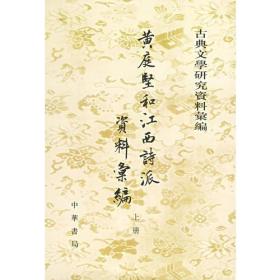 古典文學研究資料彙編
黄庭堅和江西詩派
資料彙編
上册
中華書局